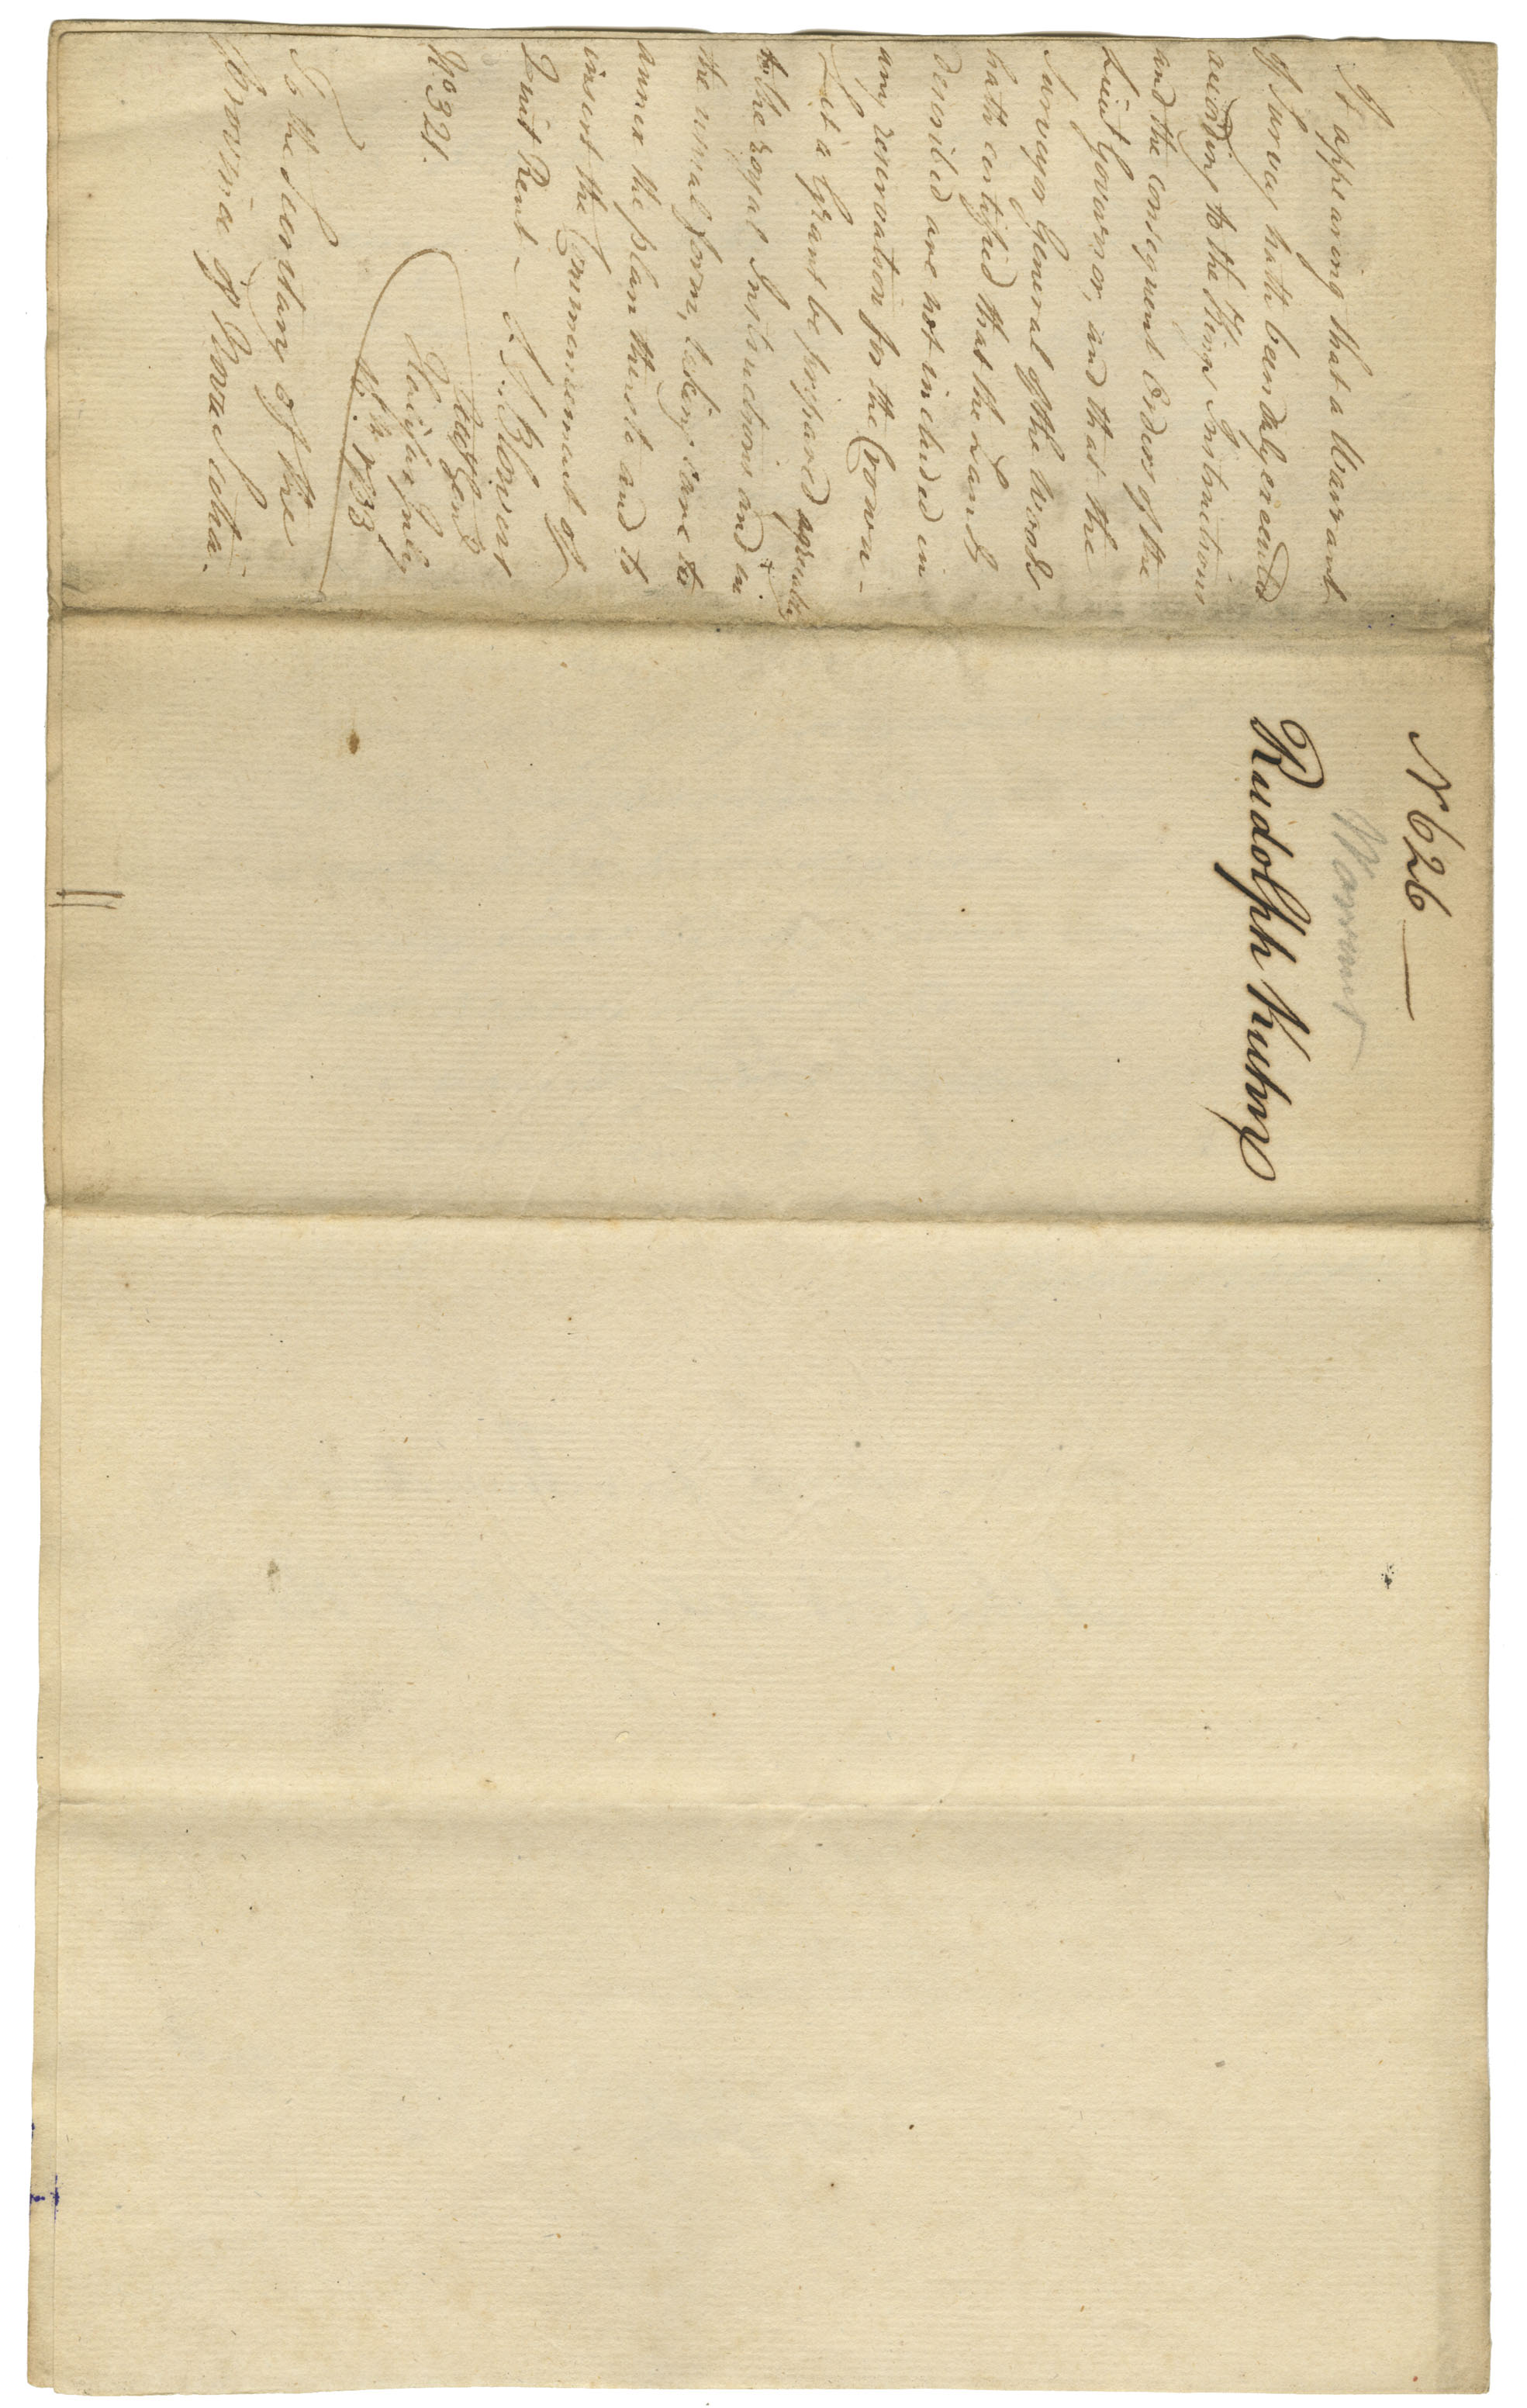 It appearing that a Warrant
of Survey hath been duly executed
according to the Kings Instructions
and the consequent Orders of the
Lieut Governor, and that the
Surveyor General of the Woods
hath certified that the Lands
described are not included in
any reservation for the Crown -
Let a Grant be prepared agreeable
to the royal Instructions and in
the usual form, taking care to
annex the plan thereto and to
insert the Commencement of
Quit Rent -
S. S. Blowers
Att Genl
Halifax July
No 321.
To the Secretary of the
Province of Nova Scotia.
No 626
Warrant
Rudolph Kuhn